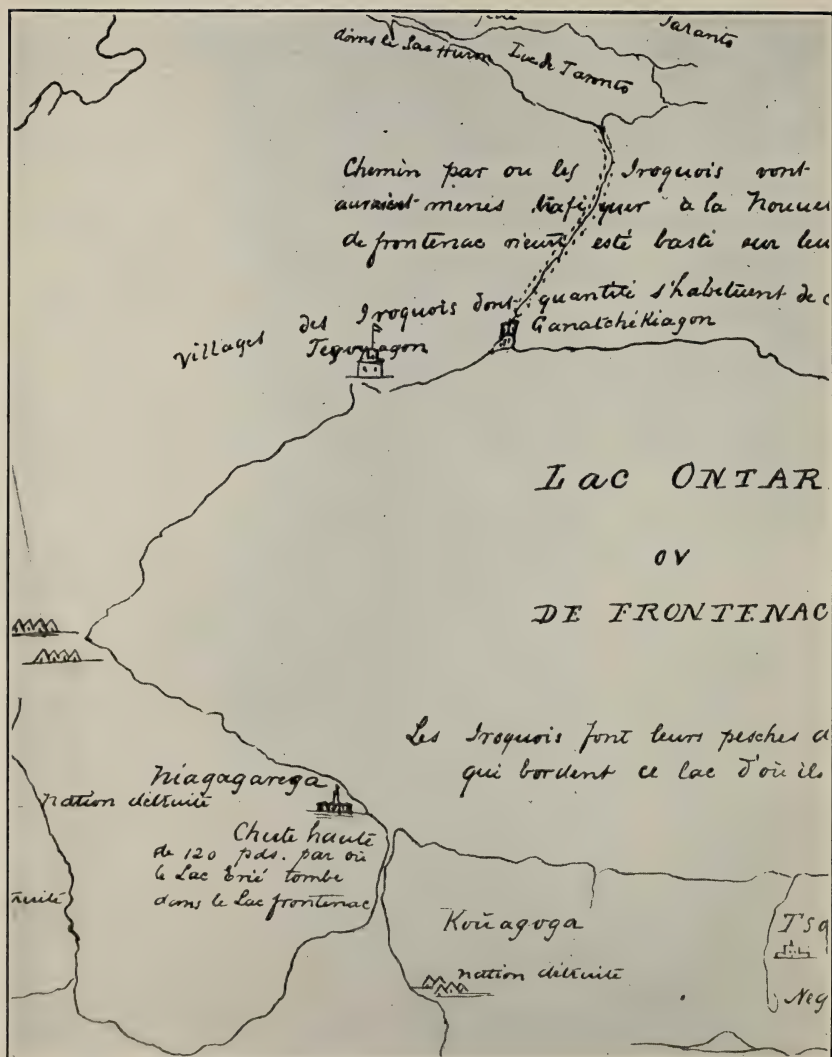 Taranto
dans le Lac Huron
Lac de Taronto
Chemin par ou les Iroquois vont
auraient menés trafiquer à la Nouve
de frontenac n'eut esté basti sur leu
villages des Iroquois dont quantité s'habituent de
Ganatchékiagon
LAC ONTAR
OV
DE FRONTENAC
Les Iroquois font leurs pesches d
qui bordent ce lac d'où ils
Niagagarega
nation détruite
Chute haute
de 120 pds. par où
le Lac Erié tombe
dans le Lac frontenac
truite
Koüagoga
nation détruite
Tso
Neg